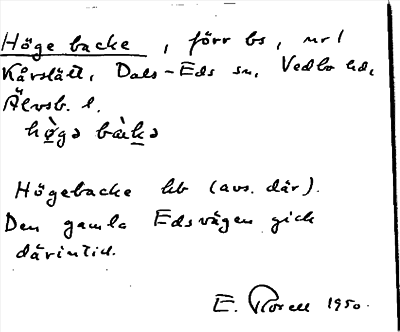 Höge backe, förr bs, nr 1
Kårslätt, Dals-Eds sn, Vedbo hd,
Älvsb. l.
hø̀gə bàkə
Högebacke hb (avs. där).
Den gamla Edsvägen gick
därintill.
E. 1950.